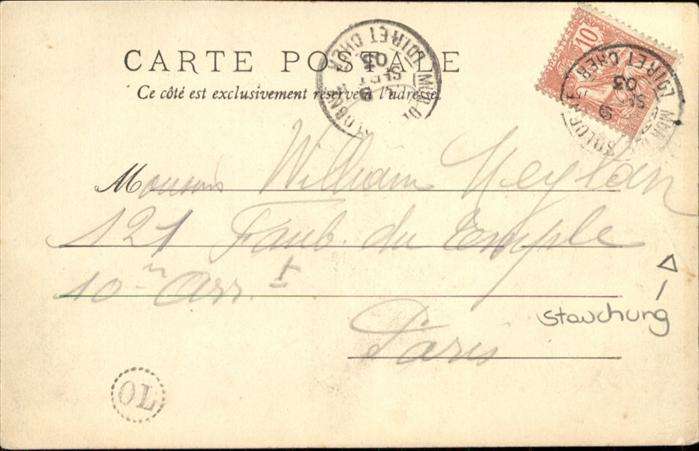 CARTE POSTALE
Ce côté est exclusivement réservé à l'adresse
LOIR ET CHER
SEPT
03
10
LOIR ET CHER
9
SEPT
03
William Meylan
121 Faub. du Temple
10 m Arr. t
Paris
Stauchung
OL